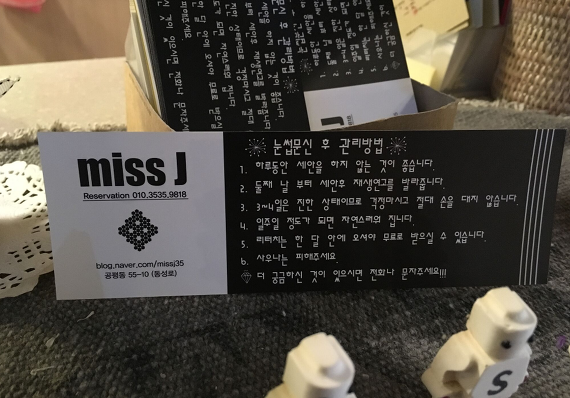 miss J
Reservation 010.3535.9818
blog.naver.com/missj35
공평동 55-10 (동성로)
눈썹문신 후 관리방법
1. 하루동안 세안을 하지 않는 것이 좋습니다.
2. 둘째 날 부터 세안후 재생연고를 발라줍니다.
3. 3~4일은 진한 상태이므로 걱정마시고 절대 손을 대지 않습니다.
4. 일주일 정도가 되면 자연스러워 집니다.
5. 리터치는 한 달 안에 오셔야 무료로 받으실 수 있습니다.
6. 사우나는 피해주세요.
더 궁금하신 것이 있으시면 전화나 문자주세요!!!
S